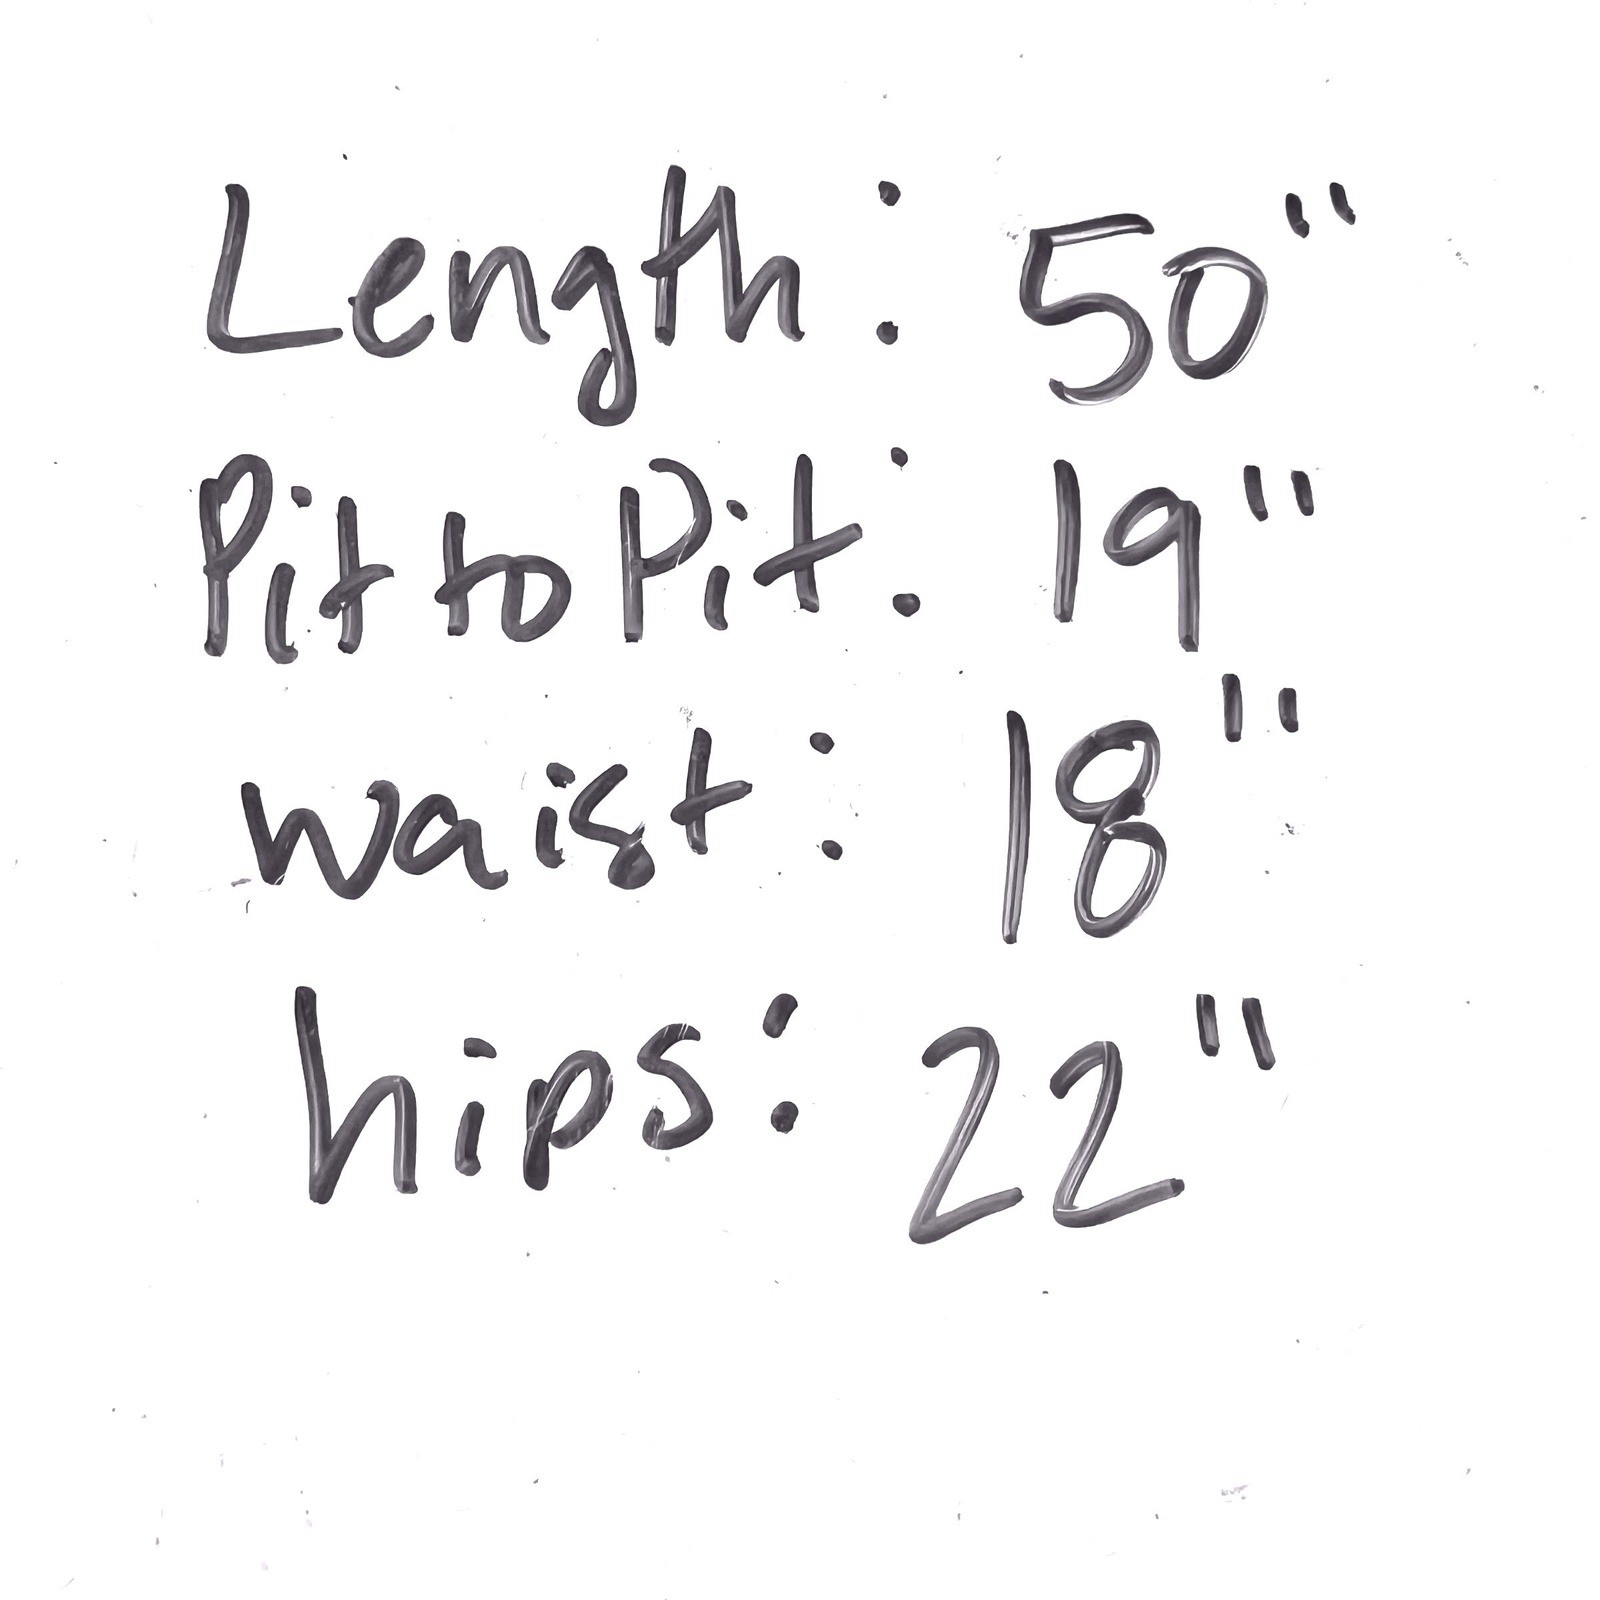 Length: 50"
Pit to Pit: 19"
waist: 18"
hips: 22"